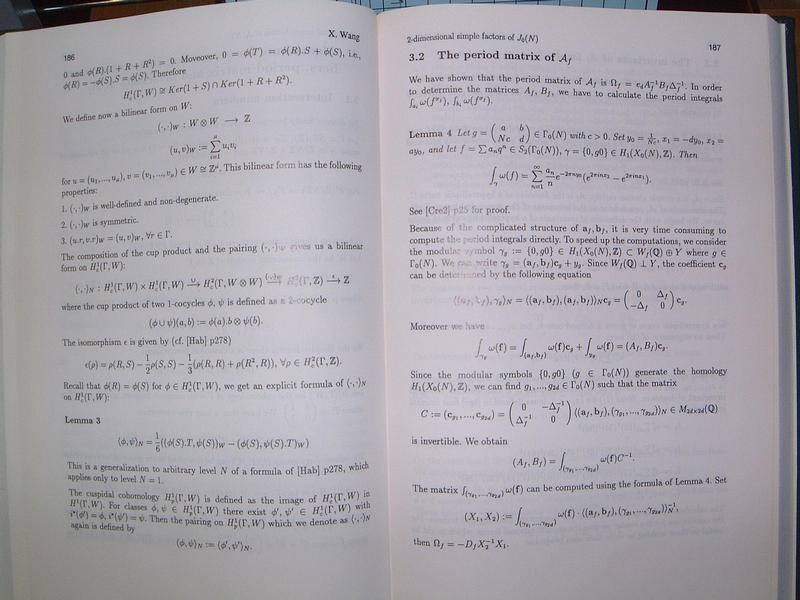 186
X. Wang
0 and ϕ(R).(1 + R + R²) = 0. Moveover, 0 = ϕ(T) = ϕ(R).S + ϕ(S), i.e.,
ϕ(R) = −ϕ(S).S = ϕ(S). Therefore
H¹c(Γ, W) ≅ Ker(1 + S) ∩ Ker(1 + R + R²).
We define now a bilinear form on W:
(·,·)_W : W ⊗ W ⟶ ℤ
(u, v)_W := ∑_{i=1}^{μ} u_i v_i
for u = (u₁, ..., u_μ), v = (v₁, ..., v_μ) ∈ W ≅ ℤ^μ. This bilinear form has the following
properties:
1. (·,·)_W is well-defined and non-degenerate.
2. (·,·)_W is symmetric.
3. (u.r, v.r)_W = (u, v)_W, ∀r ∈ Γ.
The composition of the cup product and the pairing (·,·)_W gives us a bilinear
form on H¹c(Γ, W):
⟨·,·⟩_N : H¹c(Γ, W) × H¹c(Γ, W) ⟶∪ H²c(Γ, W ⊗ W) ⟶(·,·)_W H²c(Γ, ℤ) ⟶ε ℤ
where the cup product of two 1-cocycles ϕ, ψ is defined as a 2-cocycle
(ϕ ∪ ψ)(a, b) := ϕ(a).b ⊗ ψ(b).
The isomorphism ε is given by (cf. [Hab] p278)
ε(ρ) = ρ(R, S) − ½ρ(S, S) − ⅓(ρ(R, R) + ρ(R², R)), ∀ρ ∈ H²c(Γ, ℤ).
Recall that ϕ(R) = ϕ(S) for ϕ ∈ H¹c(Γ, W), we get an explicit formula of ⟨·,·⟩_N
on H¹c(Γ, W):
Lemma 3
⟨ϕ, ψ⟩_N = 1/6((ϕ(S).T, ψ(S))_W − (ϕ(S), ψ(S).T)_W)
This is a generalization to arbitrary level N of a formula of [Hab] p278, which
applies only to level N = 1.
The cuspidal cohomology H¹_P(Γ, W) is defined as the image of H¹c(Γ, W) in
H¹(Γ, W). For classes ϕ, ψ ∈ H¹_P(Γ, W) there exist ϕ′, ψ′ ∈ H¹c(Γ, W) with
i*(ϕ′) = ϕ, i*(ψ′) = ψ. Then the pairing on H¹_P(Γ, W) which we denote as ⟨·,·⟩_N
again is defined by
⟨ϕ, ψ⟩_N := ⟨ϕ′, ψ′⟩_N.
2-dimensional simple factors of J₀(N)
187
3.2 The period matrix of A_f
We have shown that the period matrix of A_f is Ω_f = e_d A_f⁻¹ B_f Δ_f⁻¹. In order
to determine the matrices A_f, B_f, we have to calculate the period integrals
∫_{a_i} ω(f^{σ_j}), ∫_{b_i} ω(f^{σ_j}).
Lemma 4 Let g = (a b; Nc d) ∈ Γ₀(N) with c > 0. Set y₀ = 1/Nc, x₁ = −dy₀, x₂ =
ay₀, and let f = ∑ a_n qⁿ ∈ S₂(Γ₀(N)), γ = {0, g0} ∈ H₁(X₀(N), ℤ). Then
∫_γ ω(f) = ∑_{n=1}^{∞} (a_n/n) e^{−2πny₀}(e^{2πinx₂} − e^{2πinx₁}).
See [Cre2] p25 for proof.
Because of the complicated structure of a_f, b_f, it is very time consuming to
compute the period integrals directly. To speed up the computations, we consider
the modular symbol γ_g := {0, g0} ∈ H₁(X₀(N), ℤ) ⊂ W_f(ℚ) ⊕ Y where g ∈
Γ₀(N). We can write γ_g = (a_f, b_f)c_g + y_g. Since W_f(ℚ) ⊥ Y, the coefficient c_g
can be determined by the following equation
⟨(a_f, b_f), γ_g⟩_N = ⟨(a_f, b_f), (a_f, b_f)⟩_N c_g = (0 Δ_f; −Δ_f 0) c_g.
Moreover we have
∫_{γ_g} ω(f) = ∫_{(a_f, b_f)} ω(f)c_g + ∫_{y_g} ω(f) = (A_f, B_f)c_g.
Since the modular symbols {0, g0} (g ∈ Γ₀(N)) generate the homology
H₁(X₀(N), ℤ), we can find g₁, ..., g_{2d} ∈ Γ₀(N) such that the matrix
C := (c_{g₁}, ..., c_{g_{2d}}) = (0 −Δ_f⁻¹; Δ_f⁻¹ 0) ⟨(a_f, b_f), (γ_{g₁}, ..., γ_{g_{2d}})⟩_N ∈ M_{2d×2d}(ℚ)
is invertible. We obtain
(A_f, B_f) = ∫_{(γ_{g₁}, ..., γ_{g_{2d}})} ω(f)C⁻¹.
The matrix ∫_{(γ_{g₁}, ..., γ_{g_{2d}})} ω(f) can be computed using the formula of Lemma 4. Set
(X₁, X₂) := ∫_{(γ_{g₁}, ..., γ_{g_{2d}})} ω(f) · ⟨(a_f, b_f), (γ_{g₁}, ..., γ_{g_{2d}})⟩_N⁻¹,
then Ω_f = −D_f X₂⁻¹ X₁.